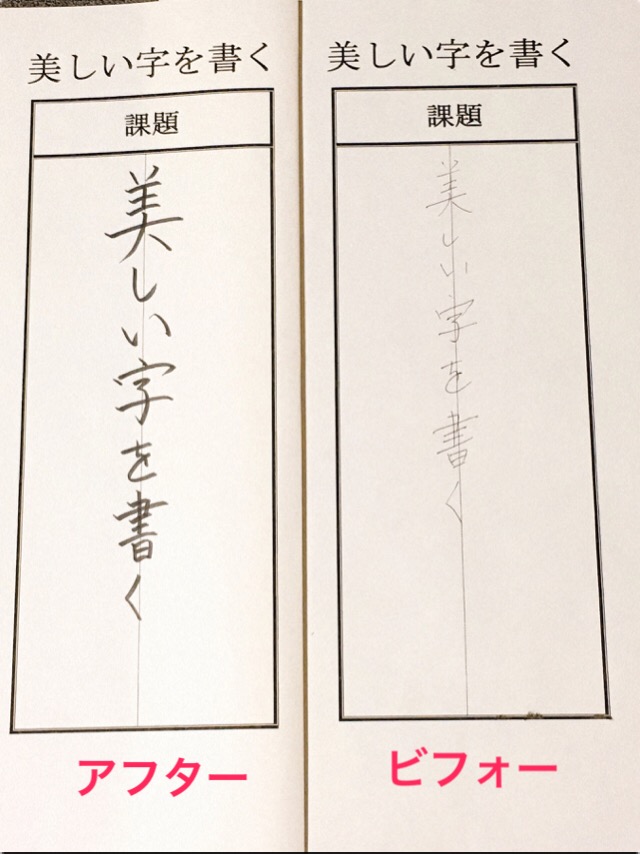 美しい字を書く
課題
美しい字を書く
アフター
美しい字を書く
課題
美しい字を書く
ビフォー